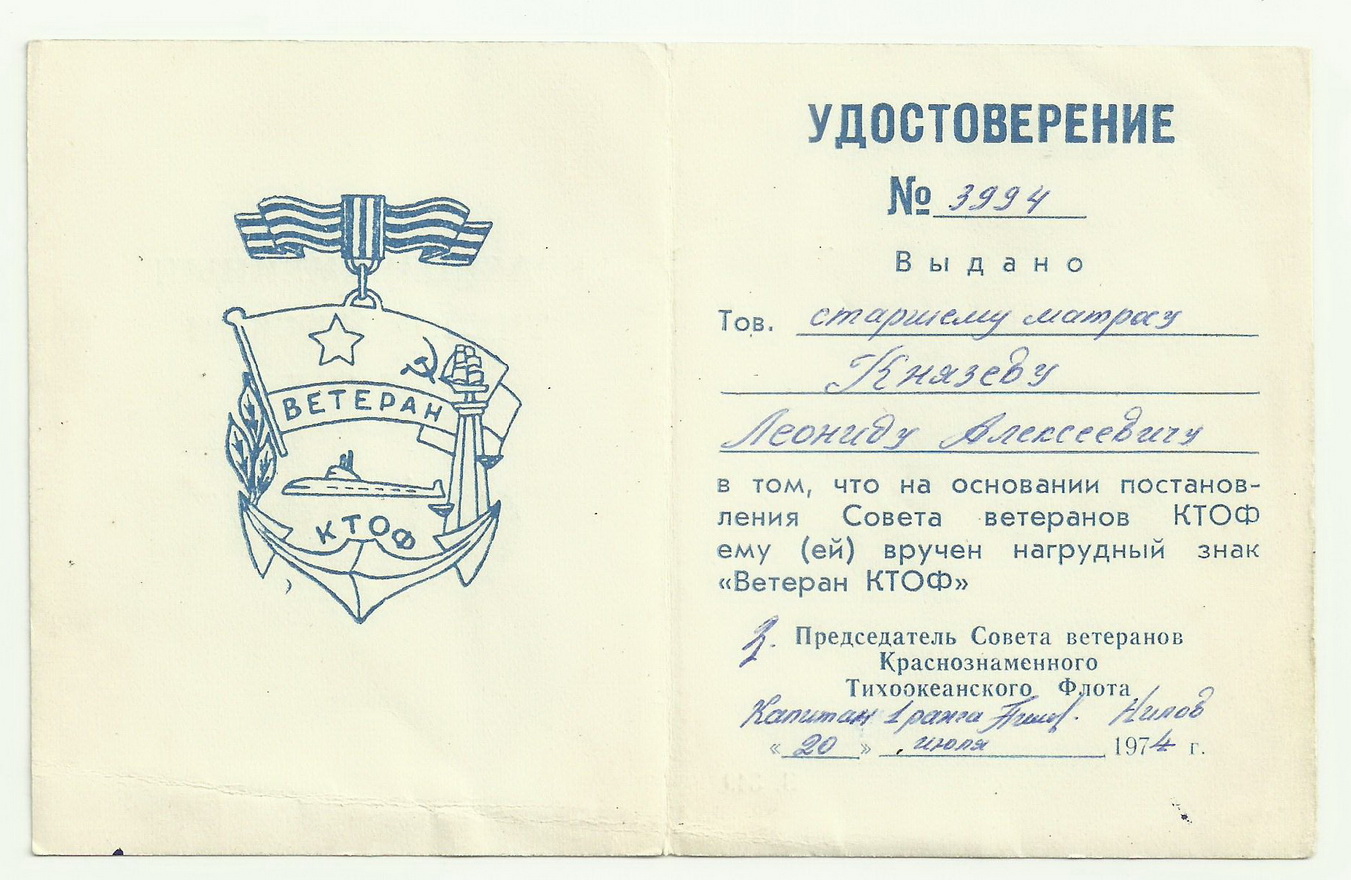 ВЕТЕРАН
КТОФ
УДОСТОВЕРЕНИЕ
№ 3994
Выдано
Тов. старшему матросу
Князеву
Леониду Алексеевичу
в том, что на основании постанов-
ления Совета ветеранов КТОФ
ему (ей) вручен нагрудный знак
«Ветеран КТОФ»
З. Председатель Совета ветеранов
Краснознаменного
Тихоокеанского Флота
Капитан 1 ранга Нилов
« 20 » июля 1974 г.